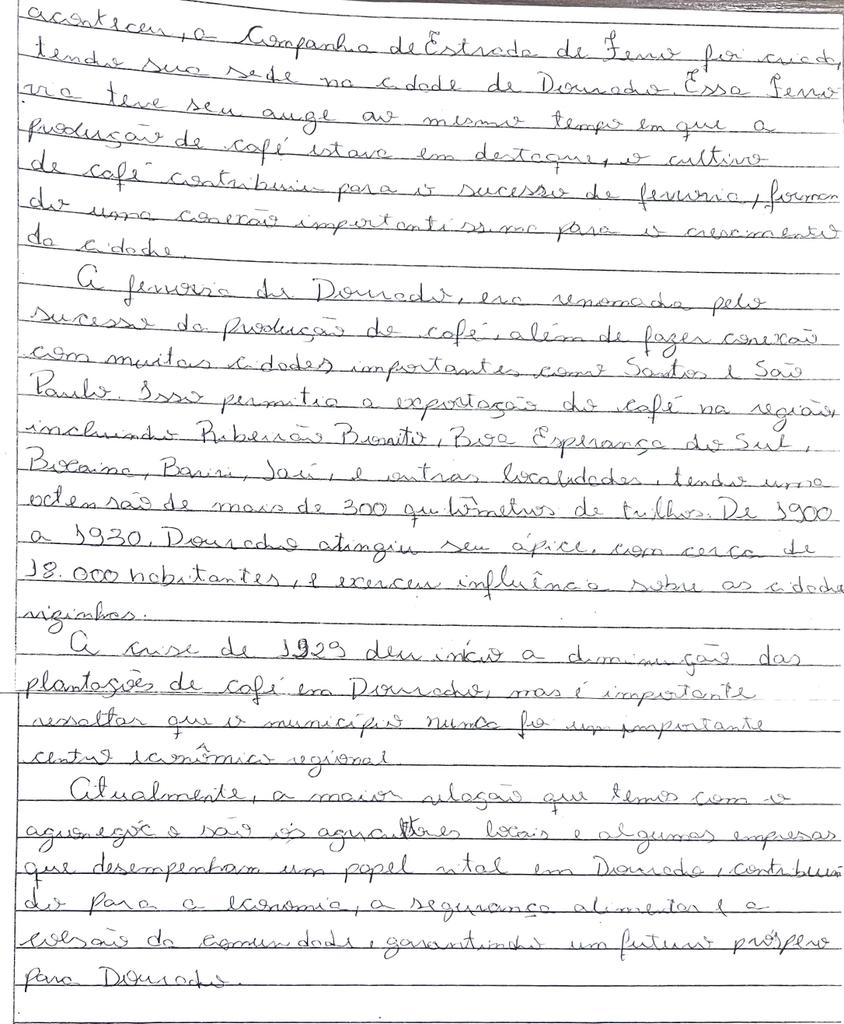 aconteceu, a Companha de Estrada de Ferro foi criada,
tendo sua sede na cidade de Dourado. Essa ferro
via teve seu auge ao mesmo tempo em que a
produção de café estava em destaque, o cultivo
de café contribuiu para o sucesso de ferrovia, forman
do uma conexão importantíssima para o crescimento
da cidade.
A ferrovia de Dourado, era renomada pelo
sucesso da produção de café, além de fazer conexão
com muitas cidades importantes como Santos e São
Paulo. Isso permitia a exportação do café na região,
incluindo Ribeirão Bonito, Boa Esperança do Sul,
Bocaina, Bariri, Jaú, e outras localidades, tendo uma
extensão de mais de 300 quilômetros de trilhos. De 1900
a 1930, Dourado atingiu seu ápice, com cerca de
18.000 habitantes, e exerceu influência sobre as cidades
vizinhas.
A crise de 1929 deu início a diminuição das
plantações de café em Dourado, mas é importante
ressaltar que o município nunca foi um importante
centro econômico regional.
Atualmente, a maior relação que temos com o
agronegócio são os agricultores locais e algumas empresas
que desempenham um papel vital em Dourado, contribuin
do para a economia, a segurança alimentar e a
coesão da comunidade, garantindo um futuro próspero
para Dourado.